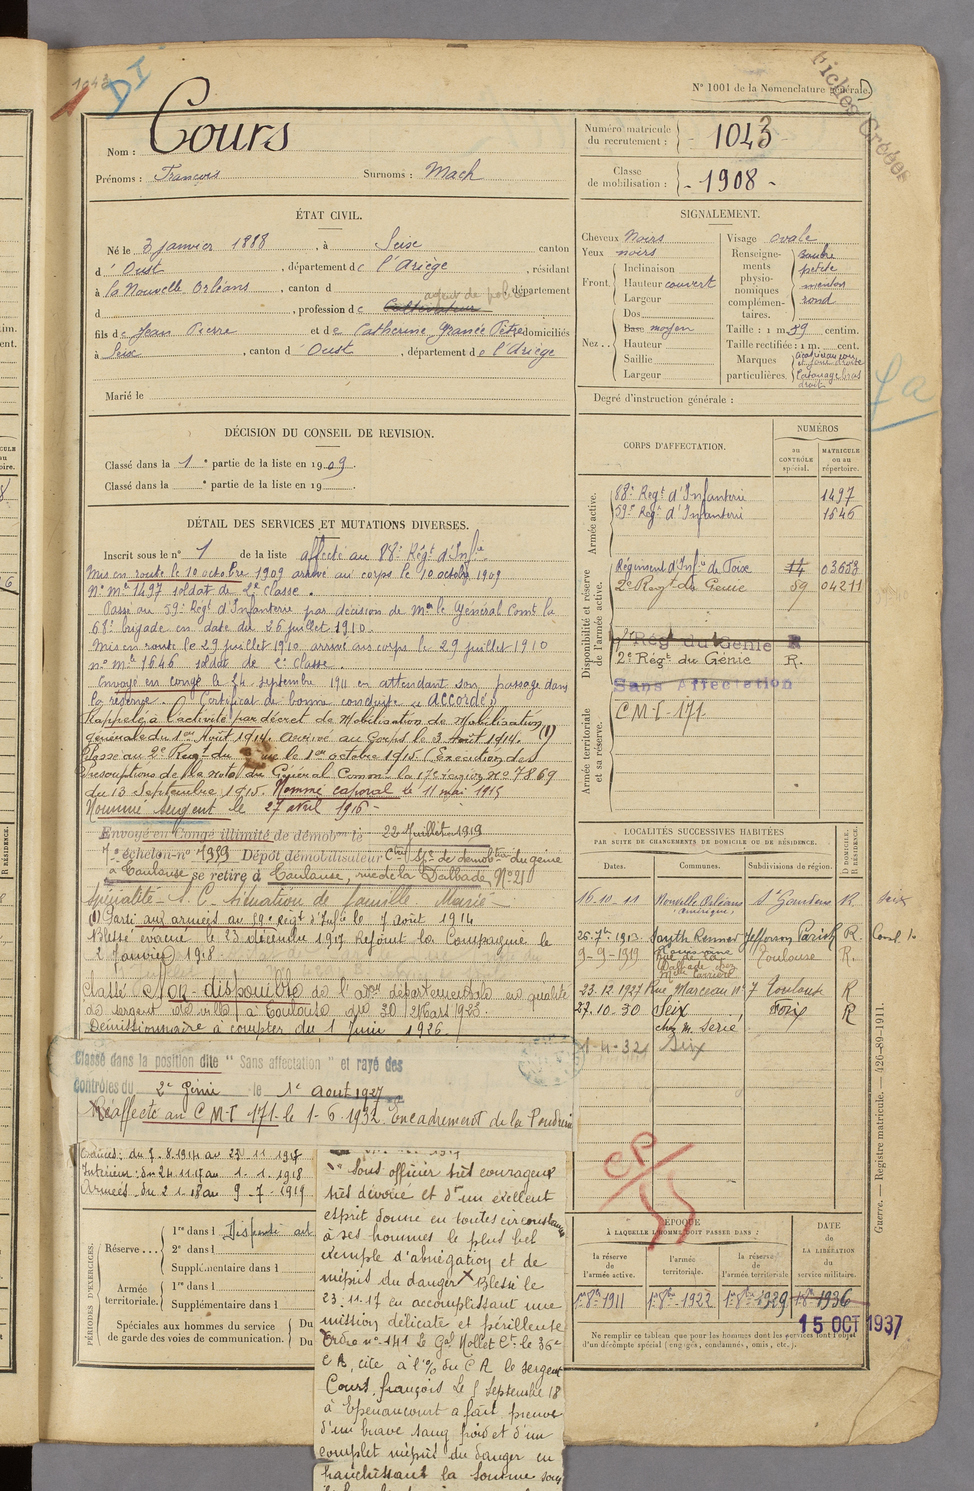 1043
DI
Fiches Créées
N° 1001 de la Nomenclature générale.
Nom : Cours
Prénoms : François Surnoms : Mach
Numéro matricule du recrutement : 1043
Classe de mobilisation : 1908
ÉTAT CIVIL.
Né le 3 janvier 1888, à Seix canton
d'Oust, département de l'Ariège, résidant
à la Nouvelle Orléans, canton d département
d , profession de Cultivateur agent de police
fils de Jean Pierre et de Catherine Francée Petre domiciliés
à Seix, canton d'Oust, département de l'Ariège
Marié le
SIGNALEMENT.
Cheveux Noirs
Yeux noirs
Front. Inclinaison
Hauteur couvert
Largeur
Nez.. Dos
Base moyen
Hauteur
Saillie
Largeur
Visage ovale
Renseignements physionomiques complémentaires. bouche petite menton rond
Taille : 1 m. 59 centim.
Taille rectifiée : 1 m. cent.
Marques particulières. tatouage bras droit
Degré d'instruction générale :
fa
DÉCISION DU CONSEIL DE REVISION.
Classé dans la 1e partie de la liste en 1909.
Classé dans la e partie de la liste en 19
CORPS D'AFFECTATION.
NUMÉROS
au CONTRÔLE spécial.
MATRICULE ou au répertoire.
Armée active.
88e Regt d'Infanterie 1497
59e Regt d'Infanterie 1646
Disponibilité et réserve de l'armée active.
Régiment d'Infie de Foix 14 03653
2e Regt de Génie 59 04211
1er Rég du Génie R
2e Régt du Génie R.
Sans Affectation
Armée territoriale et sa réserve.
CM-I-171.
DÉTAIL DES SERVICES ET MUTATIONS DIVERSES.
Inscrit sous le n° 1 de la liste affecté au 88e Régt d'Infie
Mis en route le 10 octobre 1909 arrivé au corps le 10 octobre 1909
N° mle 1497 soldat de 2e classe.
Passé au 59e Régt d'Infanterie par décision de Mr le Général Comt la
68e brigade en date du 26 juillet 1910.
Mis en route le 29 juillet 1910 arrivé au corps le 29 juillet 1910
n° mle 1646 soldat de 2e classe.
Envoyé en congé le 24 septembre 1911 en attendant son passage dans
la réserve. Certificat de bonne conduite « accordé »
Rappelé à l'activité par décret de Mobilisation de Mobilisation
générale du 1er Août 1914. Arrivé au Corps le 3 Août 1914. (1)
Passé au 2e Regt du Génie le 1er octobre 1915 (Exécution des
prescriptions de la note du Général Commt la 17e région n° 7869
du 13 Septembre 1915. Nommé caporal le 11 mai 1915
Nommé sergent le 27 avril 1916 -
Envoyé en Congé illimité de démobon le 22 Juillet 1919
7e échelon n° 1959 Dépôt démobilisateur Ctre de démobtion du génie
à Toulouse se retire à Toulouse, rue de la Dalbade, N° 20
Spécialité - S. C. Situation de famille. Marié -
(1) Parti aux armées au 59e Régt d'Infie le 7 Août 1914
Blessé évacué le 23 décembre 1917 Rejoint la Compagnie le
2 Janvier 1918
Classé Non-disponible de l'adon départementale en qualité
de sergent de ville à Toulouse du 30 Mars 1923.
Démissionnaire à compter du 1 Juin 1926.
Classé dans la position dite " Sans affectation " et rayé des
contrôles du 2e Génie le 1e Aout 1927
Réaffecté au CM-I 171 le 1-6-1932. Encadrement de la Poudrerie
Armées : du 7.8.1914 au 23.11.1917
Intérieur : du 24.11.17 au 1.1.1918
Armées du 2.1.18 au 9-7-1919
LOCALITÉS SUCCESSIVES HABITÉES
PAR SUITE DE CHANGEMENTS DE DOMICILE OU DE RÉSIDENCE.
Dates. Communes. Subdivisions de région. D DOMICILE. R RÉSIDENCE.
16.10-11 Nouvelle Orléans (Amérique) St Gaudens R Seix
26.7bre 1913. South Kenner Jefferson Parish Louisiane R
9-9-1919 Rue de la Dalbade Toulouse R.
23.12.1927 Rue Marceau n° 7 Toulouse R
27.10-30 Seix chez M. Serié Foix R
1-4-32 Seix
CP
PÉRIODES D'EXERCICES.
Réserve... 1re dans l Dispensé
2e dans l
Supplémentaire dans l
Armée territoriale. 1re dans l
Supplémentaire dans l
Spéciales aux hommes du service de garde des voies de communication. Du
Du
Sous officier très courageux
très dévoué et d'un exellent
esprit donne en toutes circonstances
à ses hommes le plus bel
exemple d'abnégation et de
mépris du danger × Blessé le
23.11.17 en accomplissant une
mission délicate et périlleuse
Ordre n° 141 Le Gal Nollet Ct. le 36e
CA, cite à l'% du CA le sergent
Cours françois Le 5 Septembre 18
à Epenancourt a fait preuve
d'un brave sang froid et d'un
complet mépris du danger en
franchissant la Somme sous
ÉPOQUE
À LAQUELLE L'HOMME DOIT PASSER DANS :
la réserve de l'armée active.
l'armée territoriale.
la réserve de l'armée territoriale
DATE DE LA LIBÉRATION du service militaire.
1er 8bre 1911 1er 8bre 1922 1er 8bre 1929 1er 8bre 1936
15 OCT 1937
Ne remplir ce tableau que pour les hommes dont les services font l'objet
d'un décompte spécial (engagés, condamnés, omis, etc.).
Guerre. — Registre matricule. — 426-89-1911.